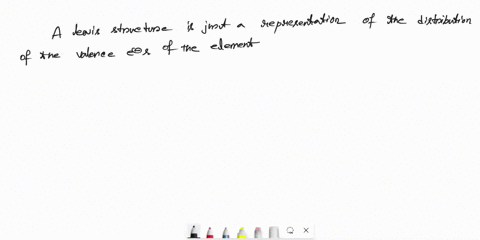 A lewis structure is just a representation of the distribution
of the valence e⊖s of the element